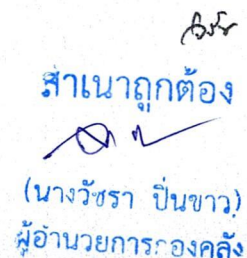 สำเนาถูกต้อง
(นางวัชรา ปิ่นขาว)
ผู้อำนวยการกองคลัง